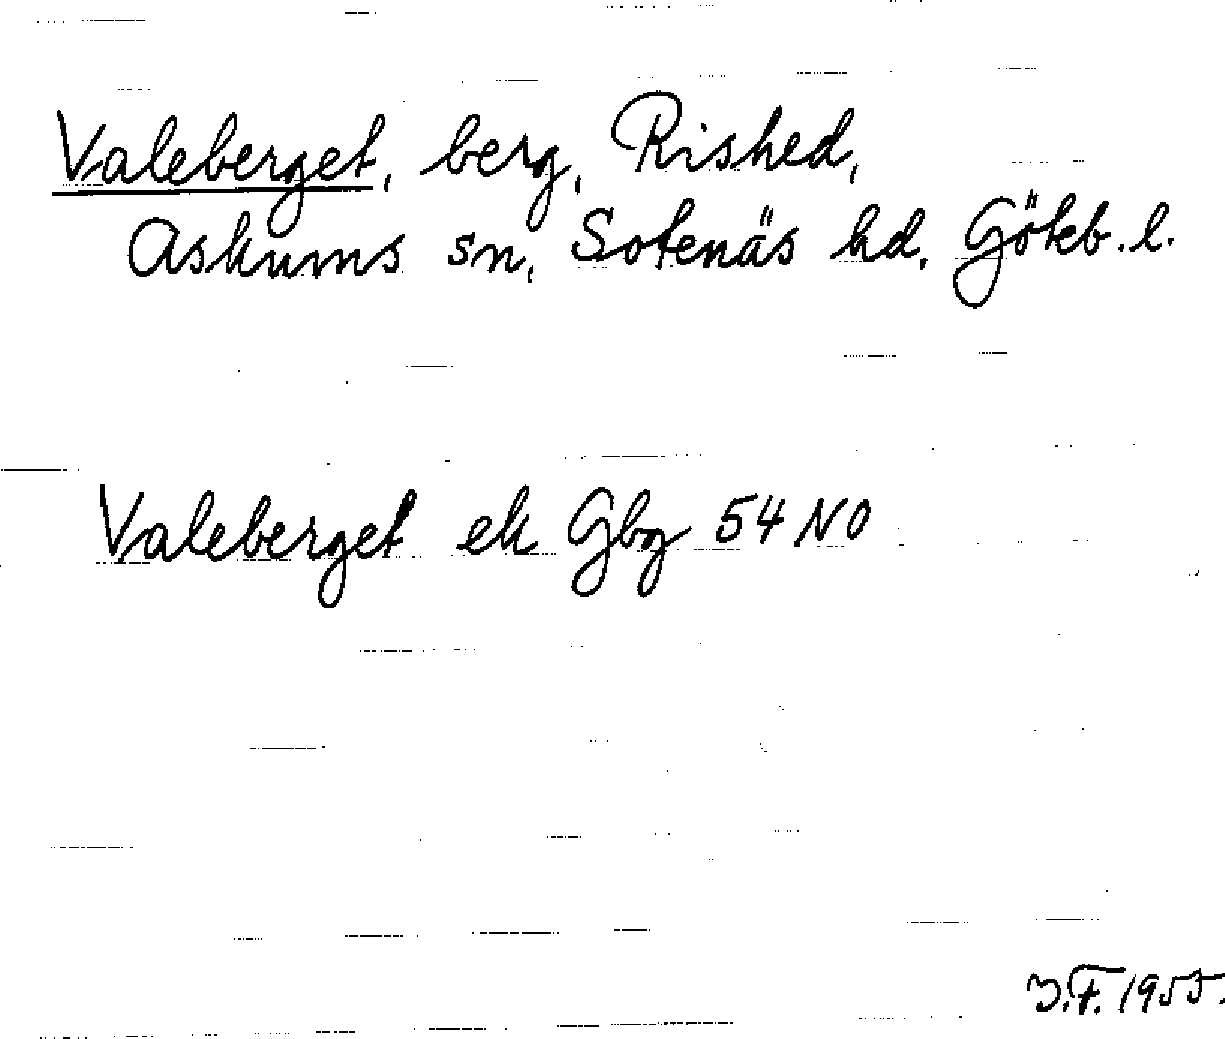 Valeberget, berg, Rished,
Askums sn, Sotenäs hd, Göteb. l.
Valeberget ek Gbg 54 NO
J.F. 1955.